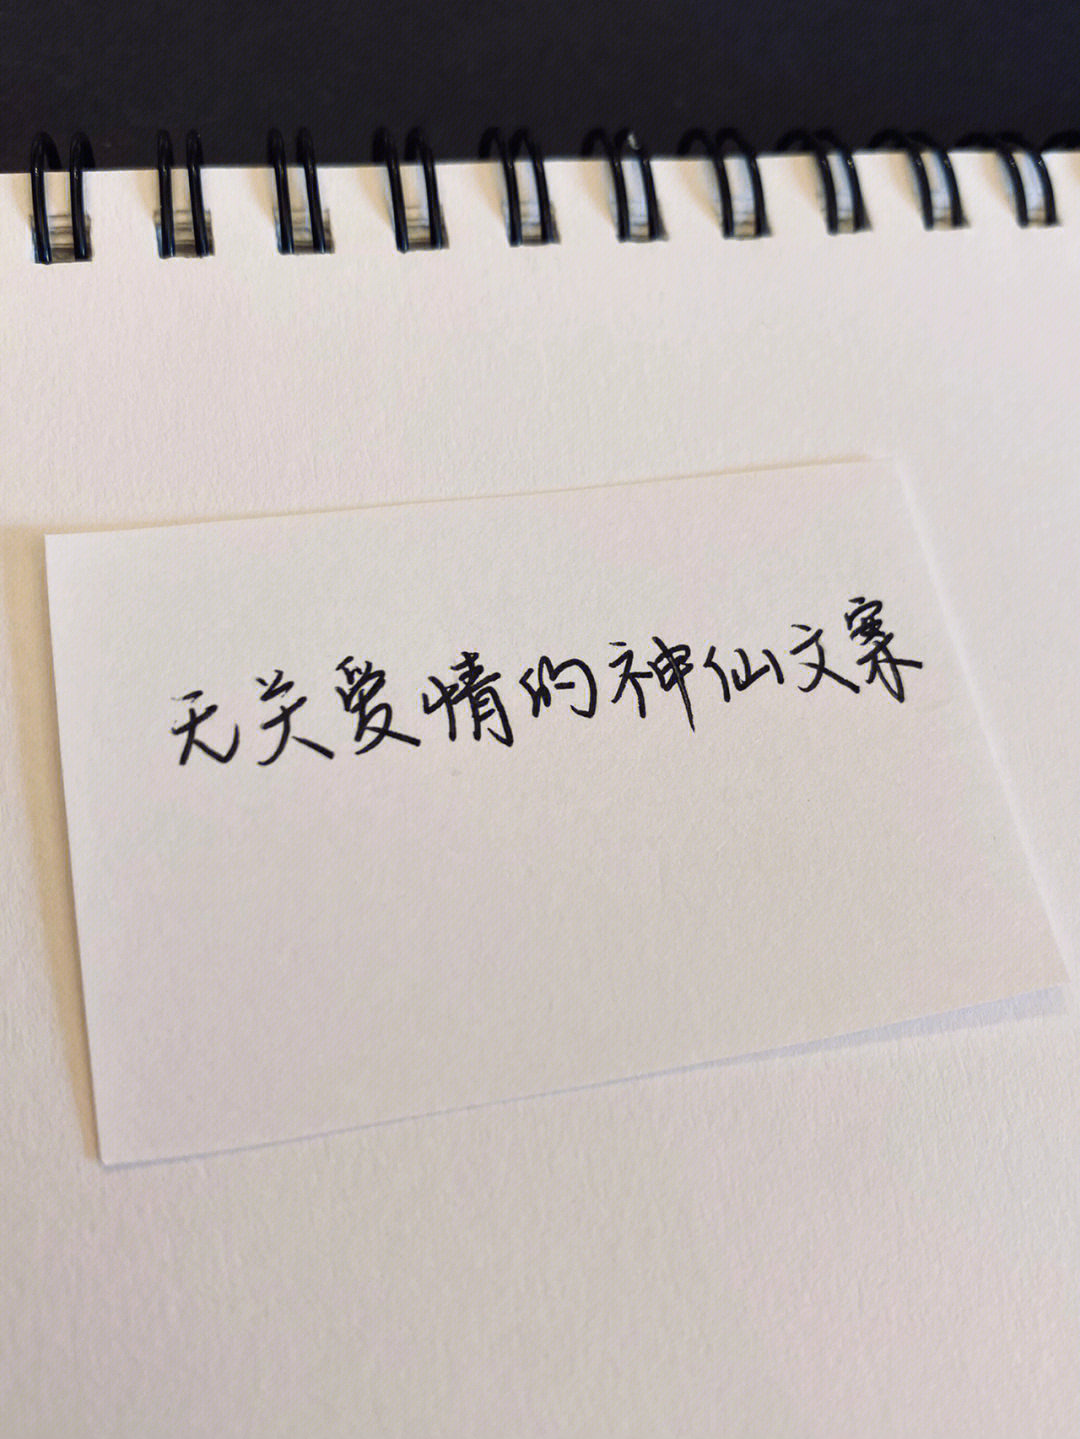 无关爱情的神仙文案